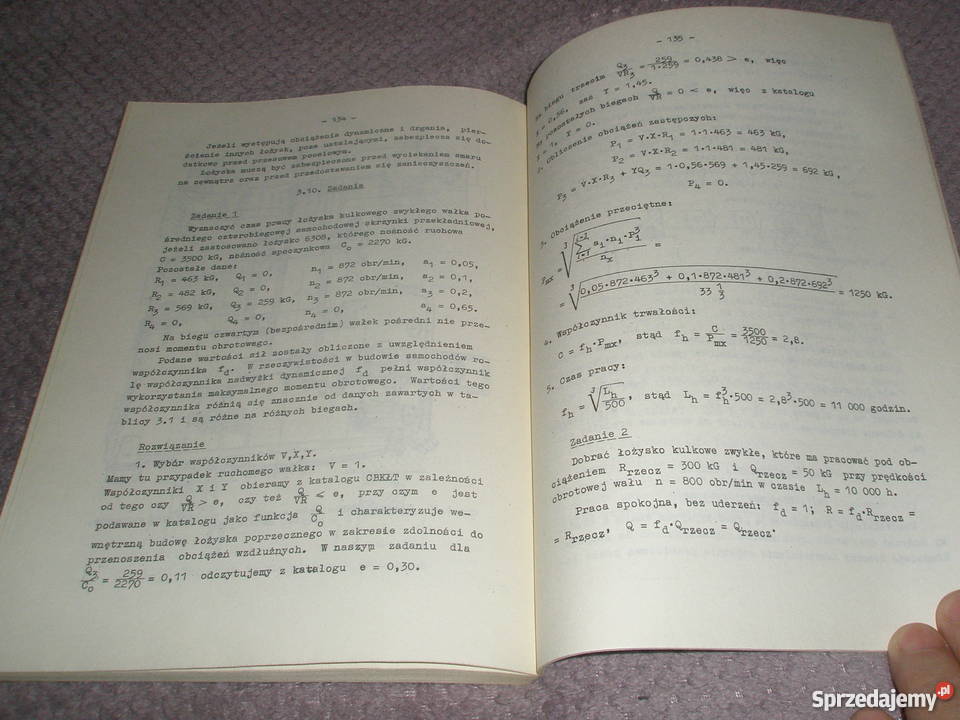 - 134 -
Jeżeli występują obciążenia dynamiczne i drgania, pier-
ścienie innych łożysk, poza ustalającymi, zabezpiecza się do-
datkowo przed przesuwem poosiowym.
Łożyska muszą być zabezpieczone przed wyciekaniem smaru
na zewnątrz oraz przed przedostawaniem się zanieczyszczeń.
3.10. Zadania
Zadanie 1
Wyznaczyć czas pracy łożyska kulkowego zwykłego wałka po-
średniego czterobiegowej samochodowej skrzynki przekładniowej,
jeżeli zastosowano łożysko 6308, którego nośność ruchowa
C = 3500 kG, nośność spoczynkowa C₀ = 2270 kG.
Pozostałe dane:
R₁ = 463 kG, Q₁ = 0, n₁ = 872 obr/min, a₁ = 0,05,
R₂ = 482 kG, Q₂ = 0, n₂ = 872 obr/min, a₂ = 0,1,
R₃ = 569 kG, Q₃ = 259 kG, n₃ = 872 obr/min, a₃ = 0,2,
R₄ = 0, Q₄ = 0, n₄ = 0, a₄ = 0,65.
Na biegu czwartym (bezpośrednim) wałek pośredni nie prze-
nosi momentu obrotowego.
Podane wartości sił zostały obliczone z uwzględnieniem
współczynnika f_d. W rzeczywistości w budowie samochodów ro-
lę współczynnika nadwyżki dynamicznej f_d pełni współczynnik
wykorzystania maksymalnego momentu obrotowego. Wartości tego
współczynnika różnią się znacznie od danych zawartych w ta-
blicy 3.1 i są różne na różnych biegach.
Rozwiązanie
1. Wybór współczynników V,X,Y.
Mamy tu przypadek ruchomego wałka: V = 1.
Współczynniki X i Y obieramy z katalogu CBKŁT w zależności
od tego czy Q/VR > e, czy też Q/VR ≤ e, przy czym e jest
podawane w katalogu jako funkcja Q/C₀ i charakteryzuje we-
wnętrzną budowę łożyska poprzecznego w zakresie zdolności do
przenoszenia obciążeń wzdłużnych. W naszym zadaniu dla
Q₃/C₀ = 259/2270 = 0,11 odczytujemy z katalogu e = 0,30.
- 135 -
Na biegu trzecim Q₃/VR₃ = 259/1·259 = 0,438 > e, więc
X = 0,56, zaś Y = 1,45.
pozostałych biegach Q/VR = 0 < e, więc z katalogu
X = 1, Y = 0.
2. Obliczenie obciążeń zastępczych:
P₁ = V·X·R₁ = 1·1·463 = 463 kG,
P₂ = V·X·R₂ = 1·1·481 = 481 kG,
P₃ = V·X·R₃ + YQ₃ = 1·0,56·569 + 1,45·259 = 692 kG,
P₄ = 0.
3. Obciążenie przeciętne:
P_mx = ∛(∑ᵢ₌₁ aᵢ·nᵢ·Pᵢ³ / n_x) =
= ∛(0,05·872·463³ + 0,1·872·481³ + 0,2·872·692³ / 33 1/3) = 1250 kG.
4. Współczynnik trwałości:
C = f_h·P_mx, stąd f_h = C/P_mx = 3500/1250 = 2,8.
5. Czas pracy:
f_h = ∛(L_h/500), stąd L_h = f_h³·500 = 2,8³·500 = 11 000 godzin.
Zadanie 2
Dobrać łożysko kulkowe zwykłe, które ma pracować pod ob-
ciążeniem R_rzecz = 300 kG i Q_rzecz = 50 kG przy prędkości
obrotowej wału n = 800 obr/min w czasie L_h = 10 000 h.
Praca spokojna, bez uderzeń: f_d = 1; R = f_d·R_rzecz =
= R_rzecz, Q = f_d·Q_rzecz = Q_rzecz.
Sprzedajemy.pl